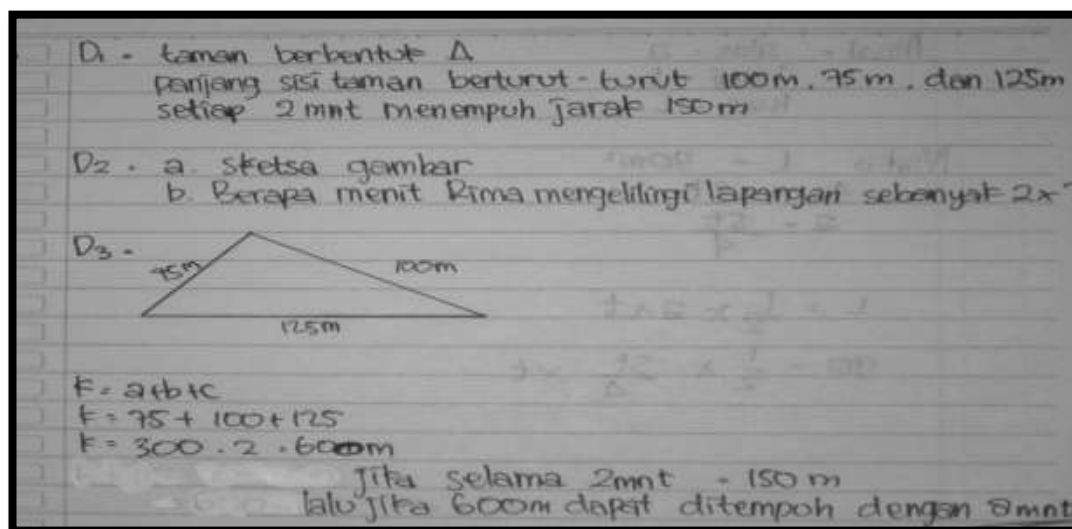 D1 - taman berbentuk Δ
panjang sisi taman berturut-turut 100m, 75m, dan 125m
setiap 2 mnt menempuh jarak 150m
D2 . a. sketsa gambar
b. Berapa menit Rima mengelilingi lapangan sebanyak 2x?
D3 -
75m
100m
125m
K = a+b+c
K = 75 + 100 + 125
K = 300 . 2 = 600m
Jika selama 2mnt = 150 m
lalu jika 600m dapat ditempuh dengan 8mnt